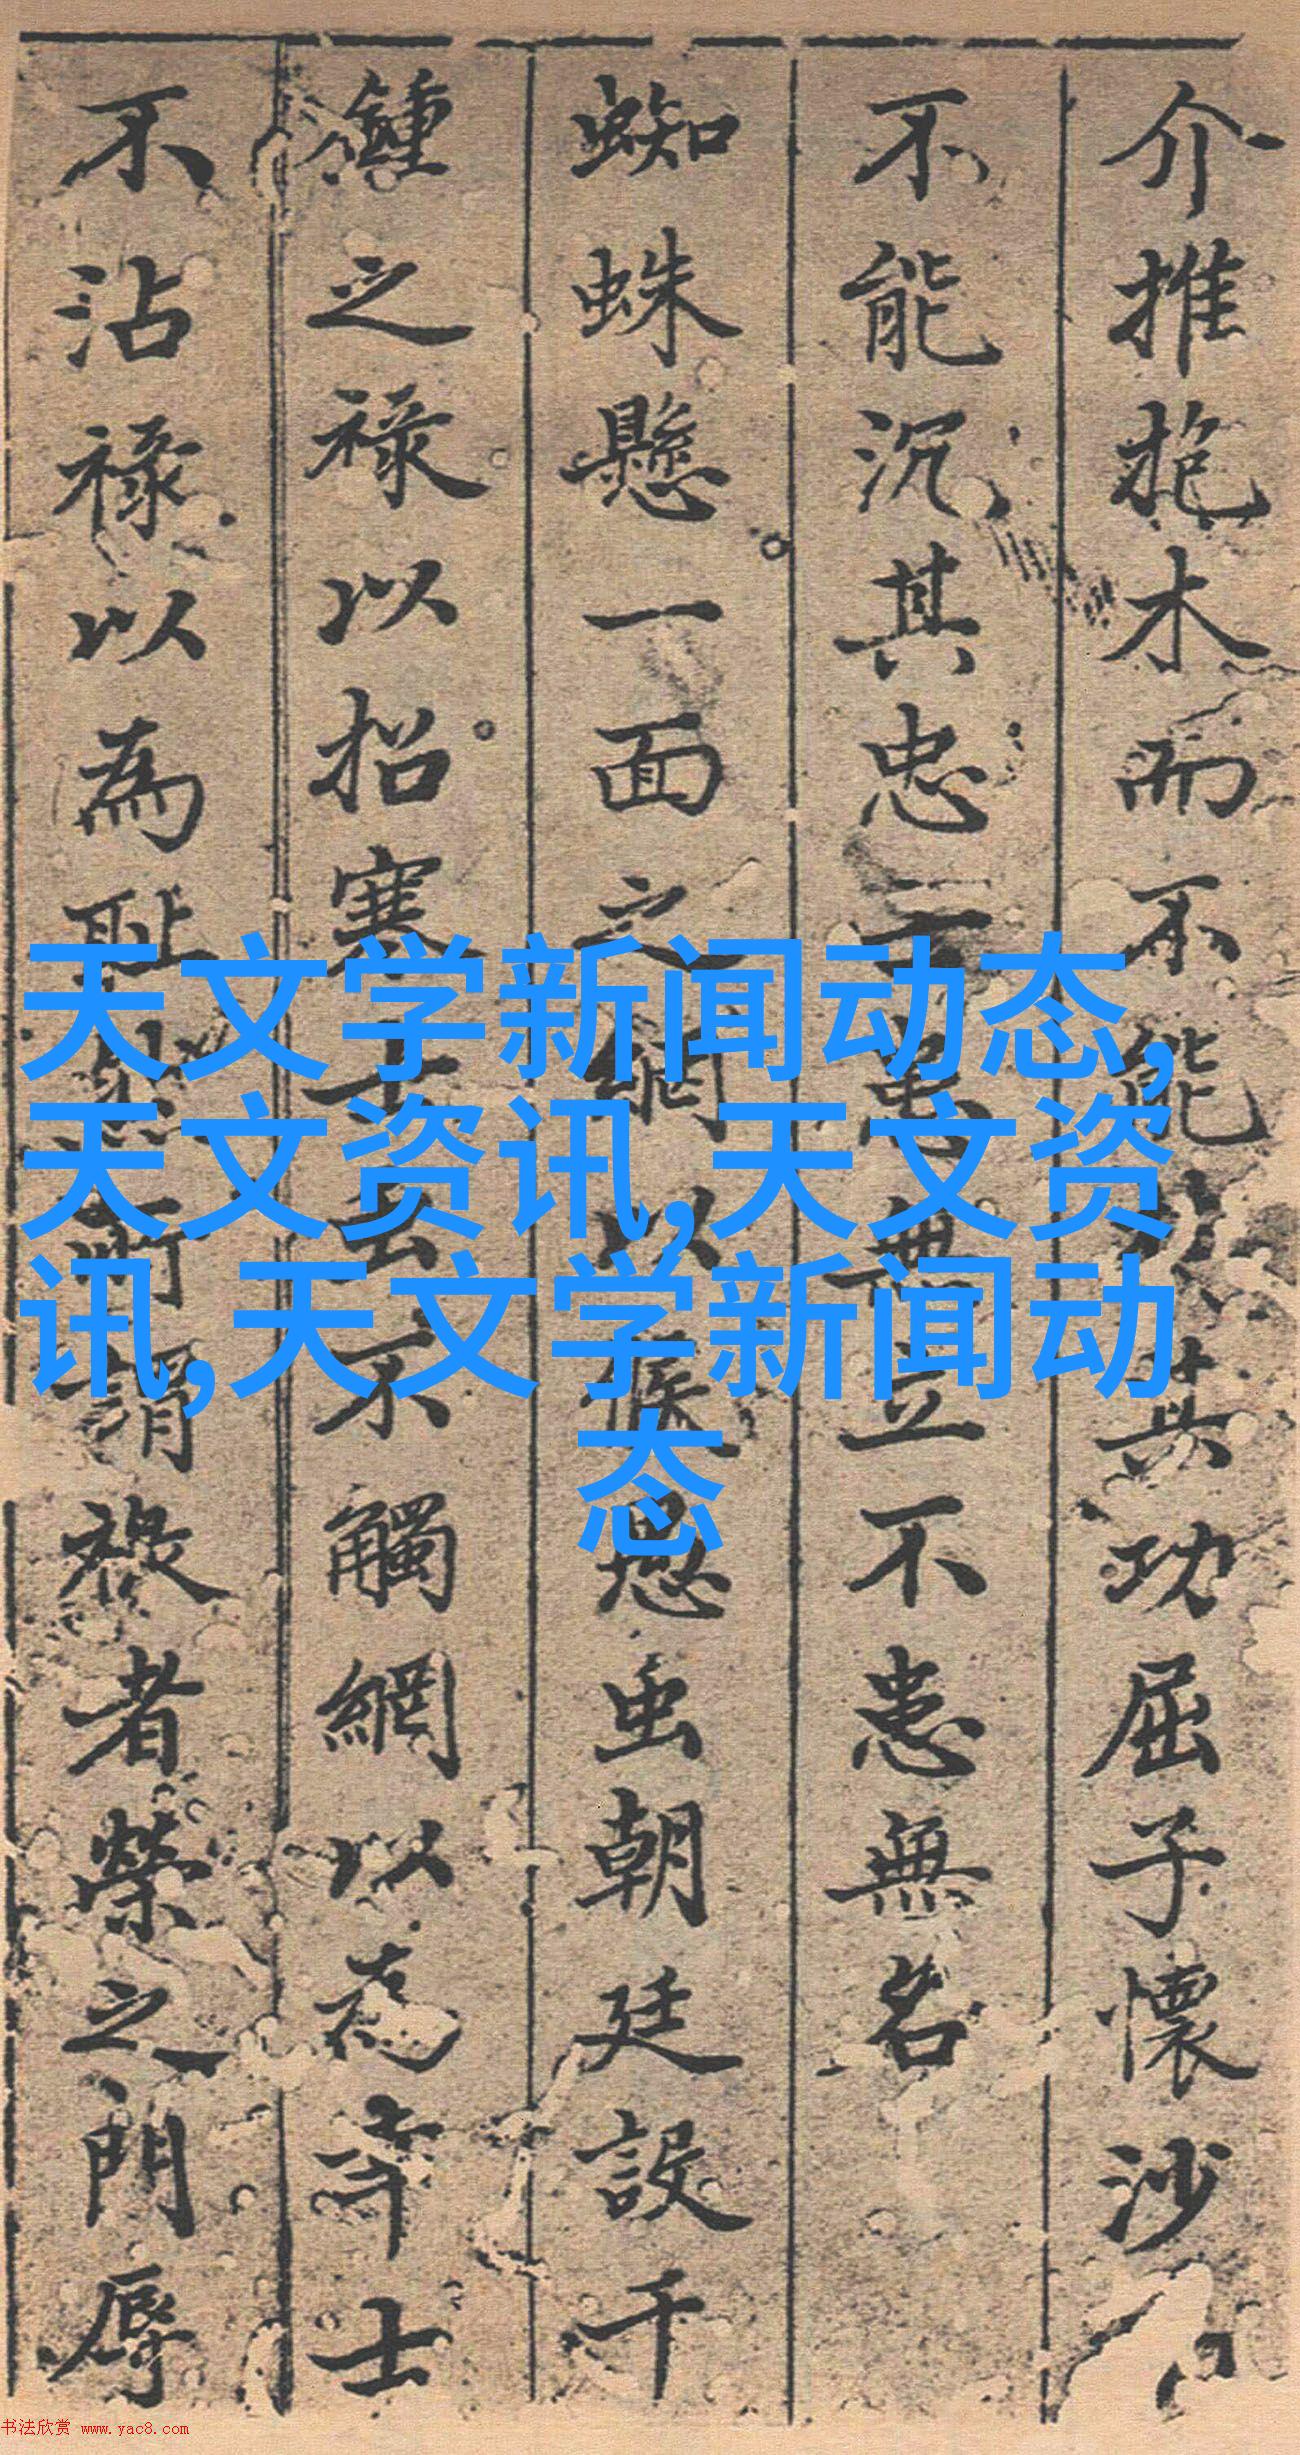 介推抱木而不能其功屈子懷沙
不能沉其忠不患無立不患無名
蜘蛛懸一面之網以愚虫朝廷設千
鍾之祿以招寒士不觸網以為幸士
不沾祿以為耻謂祿者榮之門辱
天文学新闻动态,
天文资讯,天文资
讯,天文学新闻动
态
书法欣赏 www.yac8.com